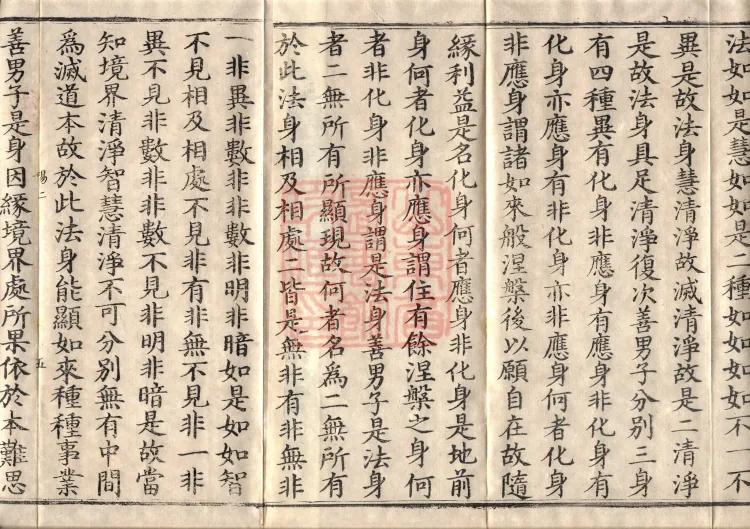 法如如是慧如如是二種如如如如不一不
異是故法身慧清淨故滅清淨故是二清淨
是故法身具足清淨復次善男子分別三身
有四種異有化身非應身有應身非化身有
化身亦應身有非化身亦非應身何者化身
非應身謂諸如來般涅槃後以願自在故隨
緣利益是名化身何者應身非化身是地前
身何者化身亦應身謂住有餘涅槃之身何
者非化身非應身謂是法身善男子是法身
者二無所有所顯現故何者名爲二無所有
於此法身相及相處二皆是無非有非無非
一非異非數非非數非明非暗如是如如智
不見相及相處不見非有非無不見非一非
異不見非數非非數不見非明非暗是故當
知境界清淨智慧清淨不可分別無有中間
爲滅道本故於此法身能顯如來種種事業
二 五
善男子是身因緣境界處所果依於本難思